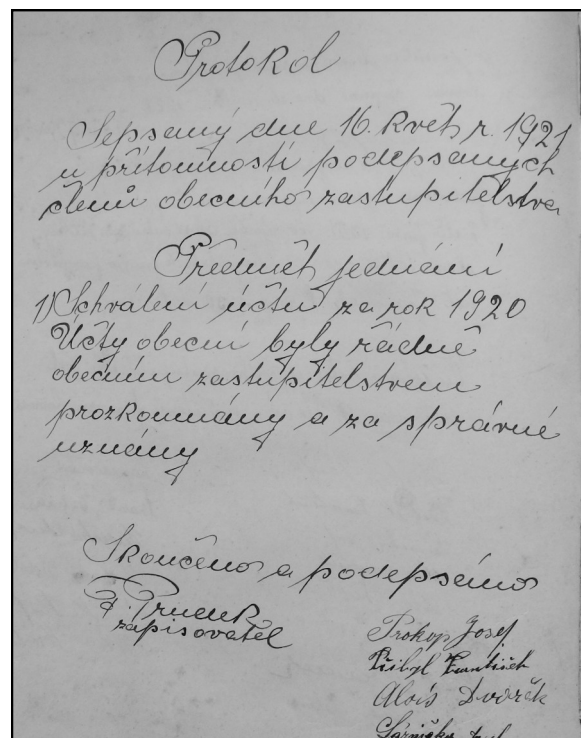 Protokol
Sepsaný dne 16. Květ. r. 1921
u přítomnosti podepsaných
členů obecního zastupitelstva
Předmět jednání
1) Schválení účtu za rok 1920
Účty obecní byly řádně
obecním zastupitelstvem
prozkoumány a za správné
uznány
Skončeno a podepsáno
zapisovatel
Prokop Josef
Přibyl František
Alois Dvořák